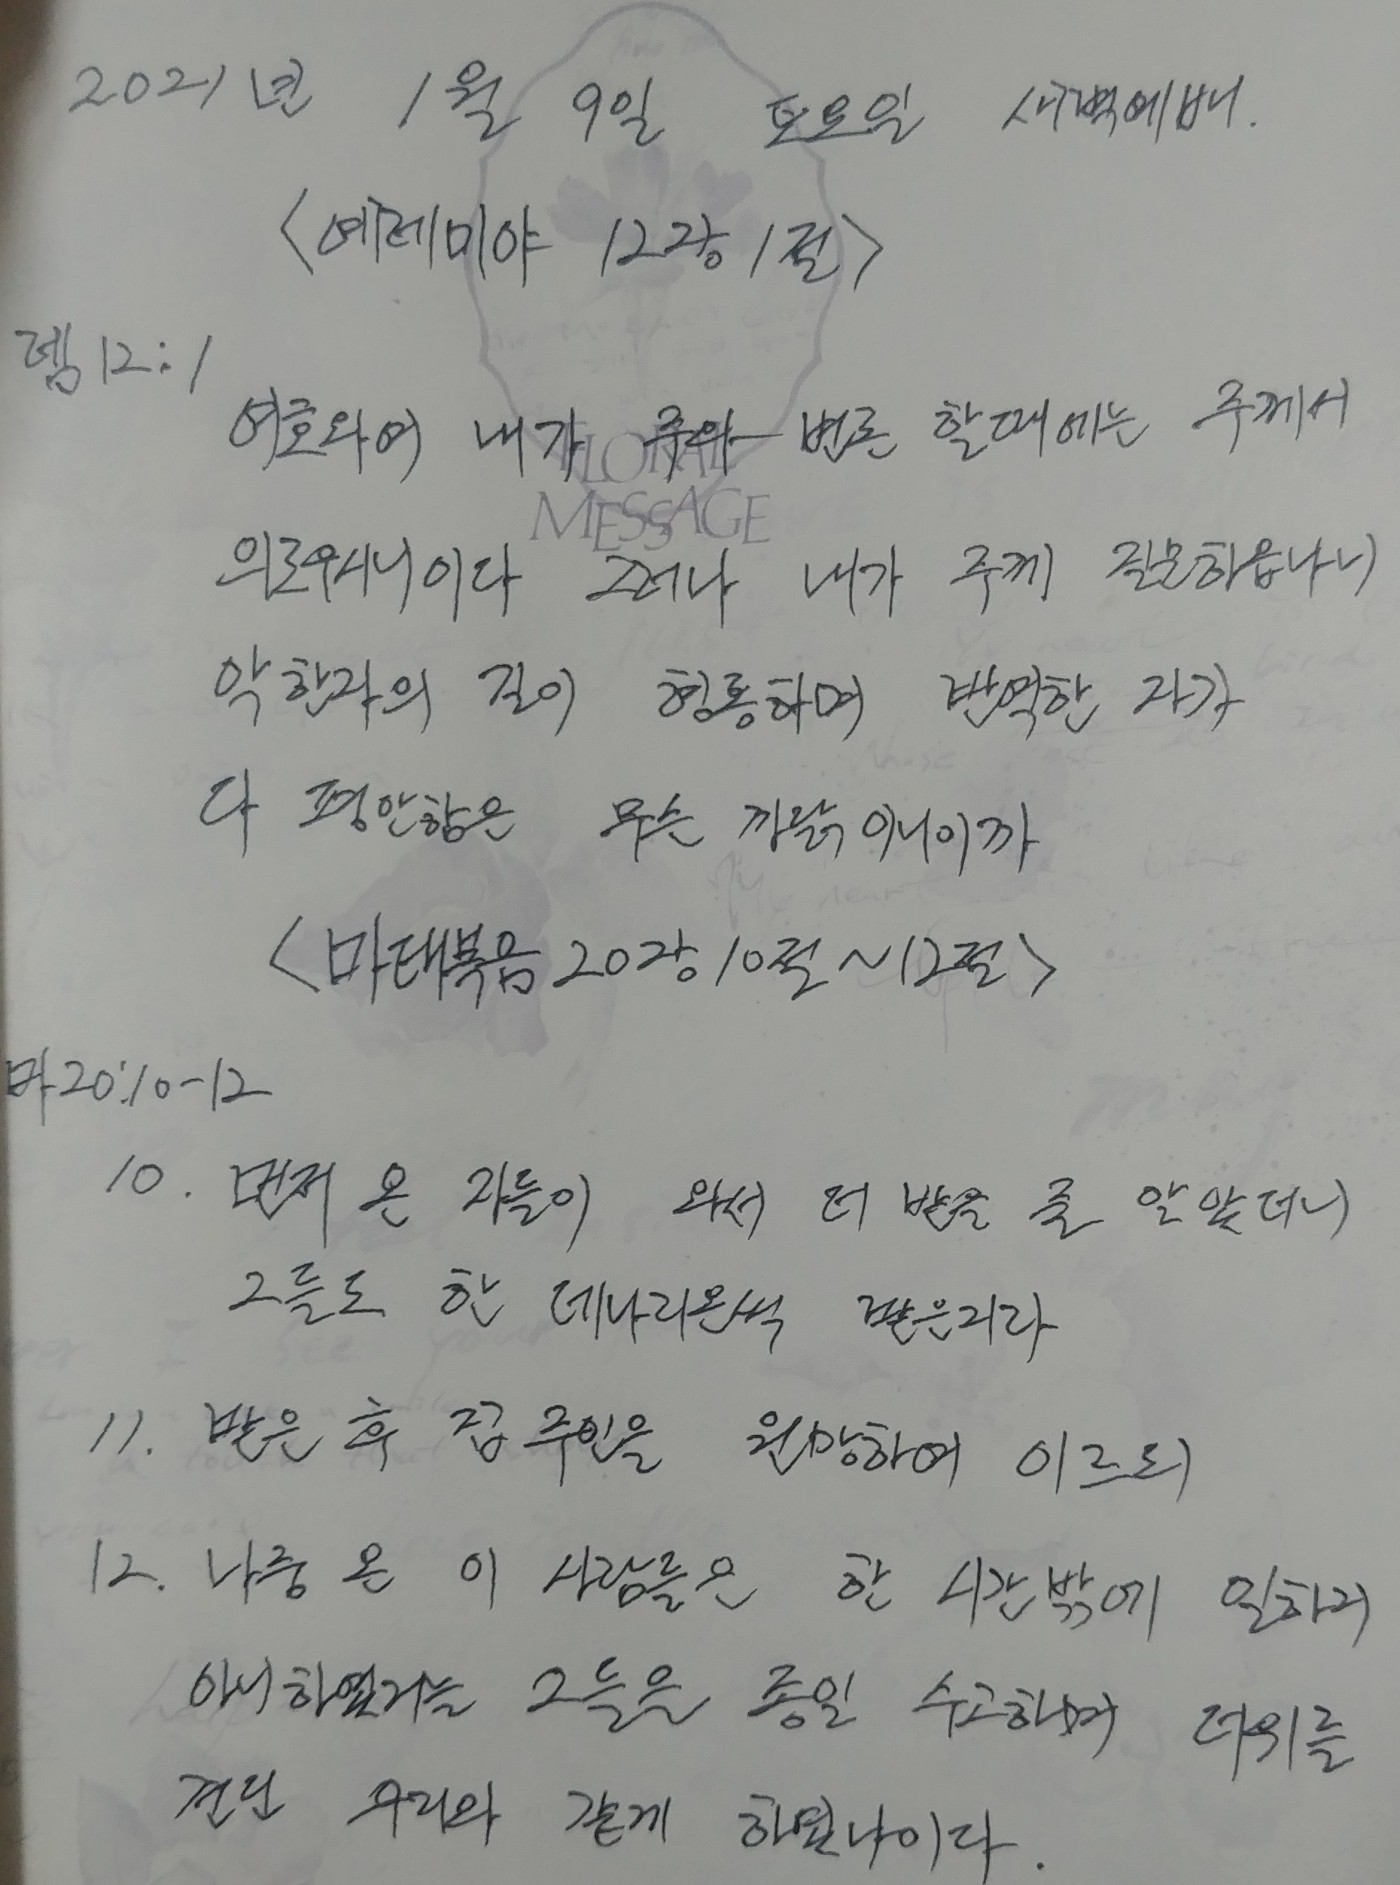 2021년 1월 9일 토요일 새벽예배.
<예레미야 12장 1절>
렘12:1
여호와여 내가 주와 변론 할때에는 주께서
의로우시니이다 그러나 내가 주께 질문하옵나니
악한자의 길이 형통하며 반역한 자가
다 평안함은 무슨 까닭이니이까
FLORAL
MESSAGE
<마태복음20장10절~12절>
마20:10-12
10. 먼저 온 자들이 와서 더 받을 줄 알았더니
그들도 한 데나리온씩 받은지라
11. 받은 후 집 주인을 원망하여 이르되
12. 나중 온 이 사람들은 한 시간밖에 일하지
아니하였거늘 그들을 종일 수고하며 더위를
견딘 우리와 같게 하였나이다.